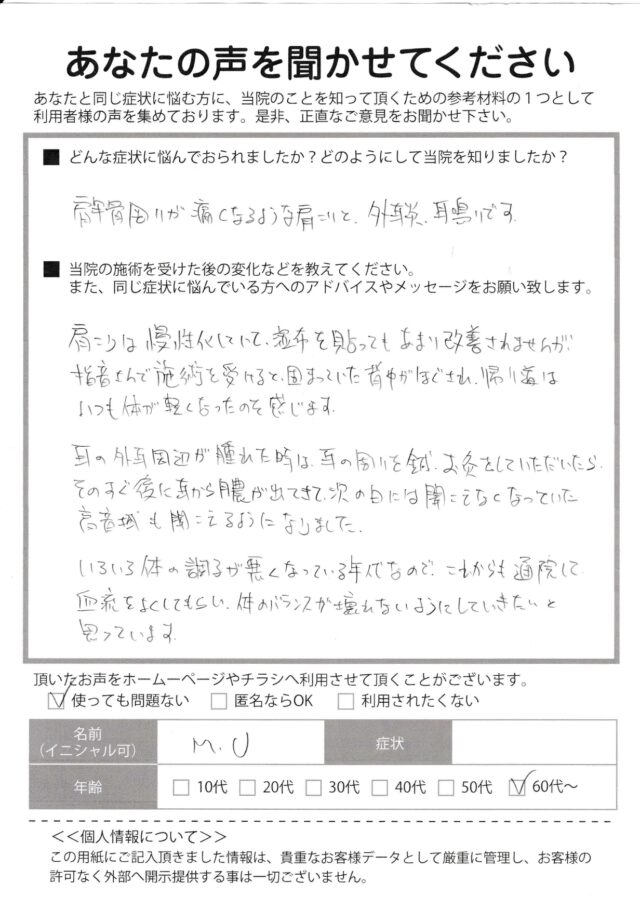 あなたの声を聞かせてください
あなたと同じ症状に悩む方に、当院のことを知って頂くための参考材料の１つとして
利用者様の声を集めております。是非、正直なご意見をお聞かせ下さい。
■ どんな症状に悩んでおられましたか？どのようにして当院を知りましたか？
肩甲骨周りが痛くなるような肩こりと、外耳炎、耳鳴りです。
■ 当院の施術を受けた後の変化などを教えてください。
また、同じ症状に悩んでいる方へのアドバイスやメッセージをお願い致します。
肩こりは慢性化していて、湿布を貼ってもあまり改善されませんが、
指音さんで施術を受けると、固まっていた背中がほぐされ、帰り道は
いつも体が軽くなったのを感じます。
耳の外耳周辺が腫れた時は、耳の周りを鍼、お灸をしていただいたら、
そのすぐ後に耳から膿が出てきて、次の日には聞こえなくなっていた
高音域も聞こえるようになりました。
いろいろ体の調子が悪くなっている年代なので、これからも通院して
血流をよくしてもらい、体のバランスが壊れないようにしていきたいと
思っています。
頂いたお声をホームーページやチラシへ利用させて頂くことがございます。
☑ 使っても問題ない □ 匿名ならOK □ 利用されたくない
名前 M.U 症状
（イニシャル可）
年齢 □ 10代 □ 20代 □ 30代 □ 40代 □ 50代 ☑ 60代〜
＜＜個人情報について＞＞
この用紙にご記入頂きました情報は、貴重なお客様データとして厳重に管理し、お客様の
許可なく外部へ開示提供する事は一切ございません。